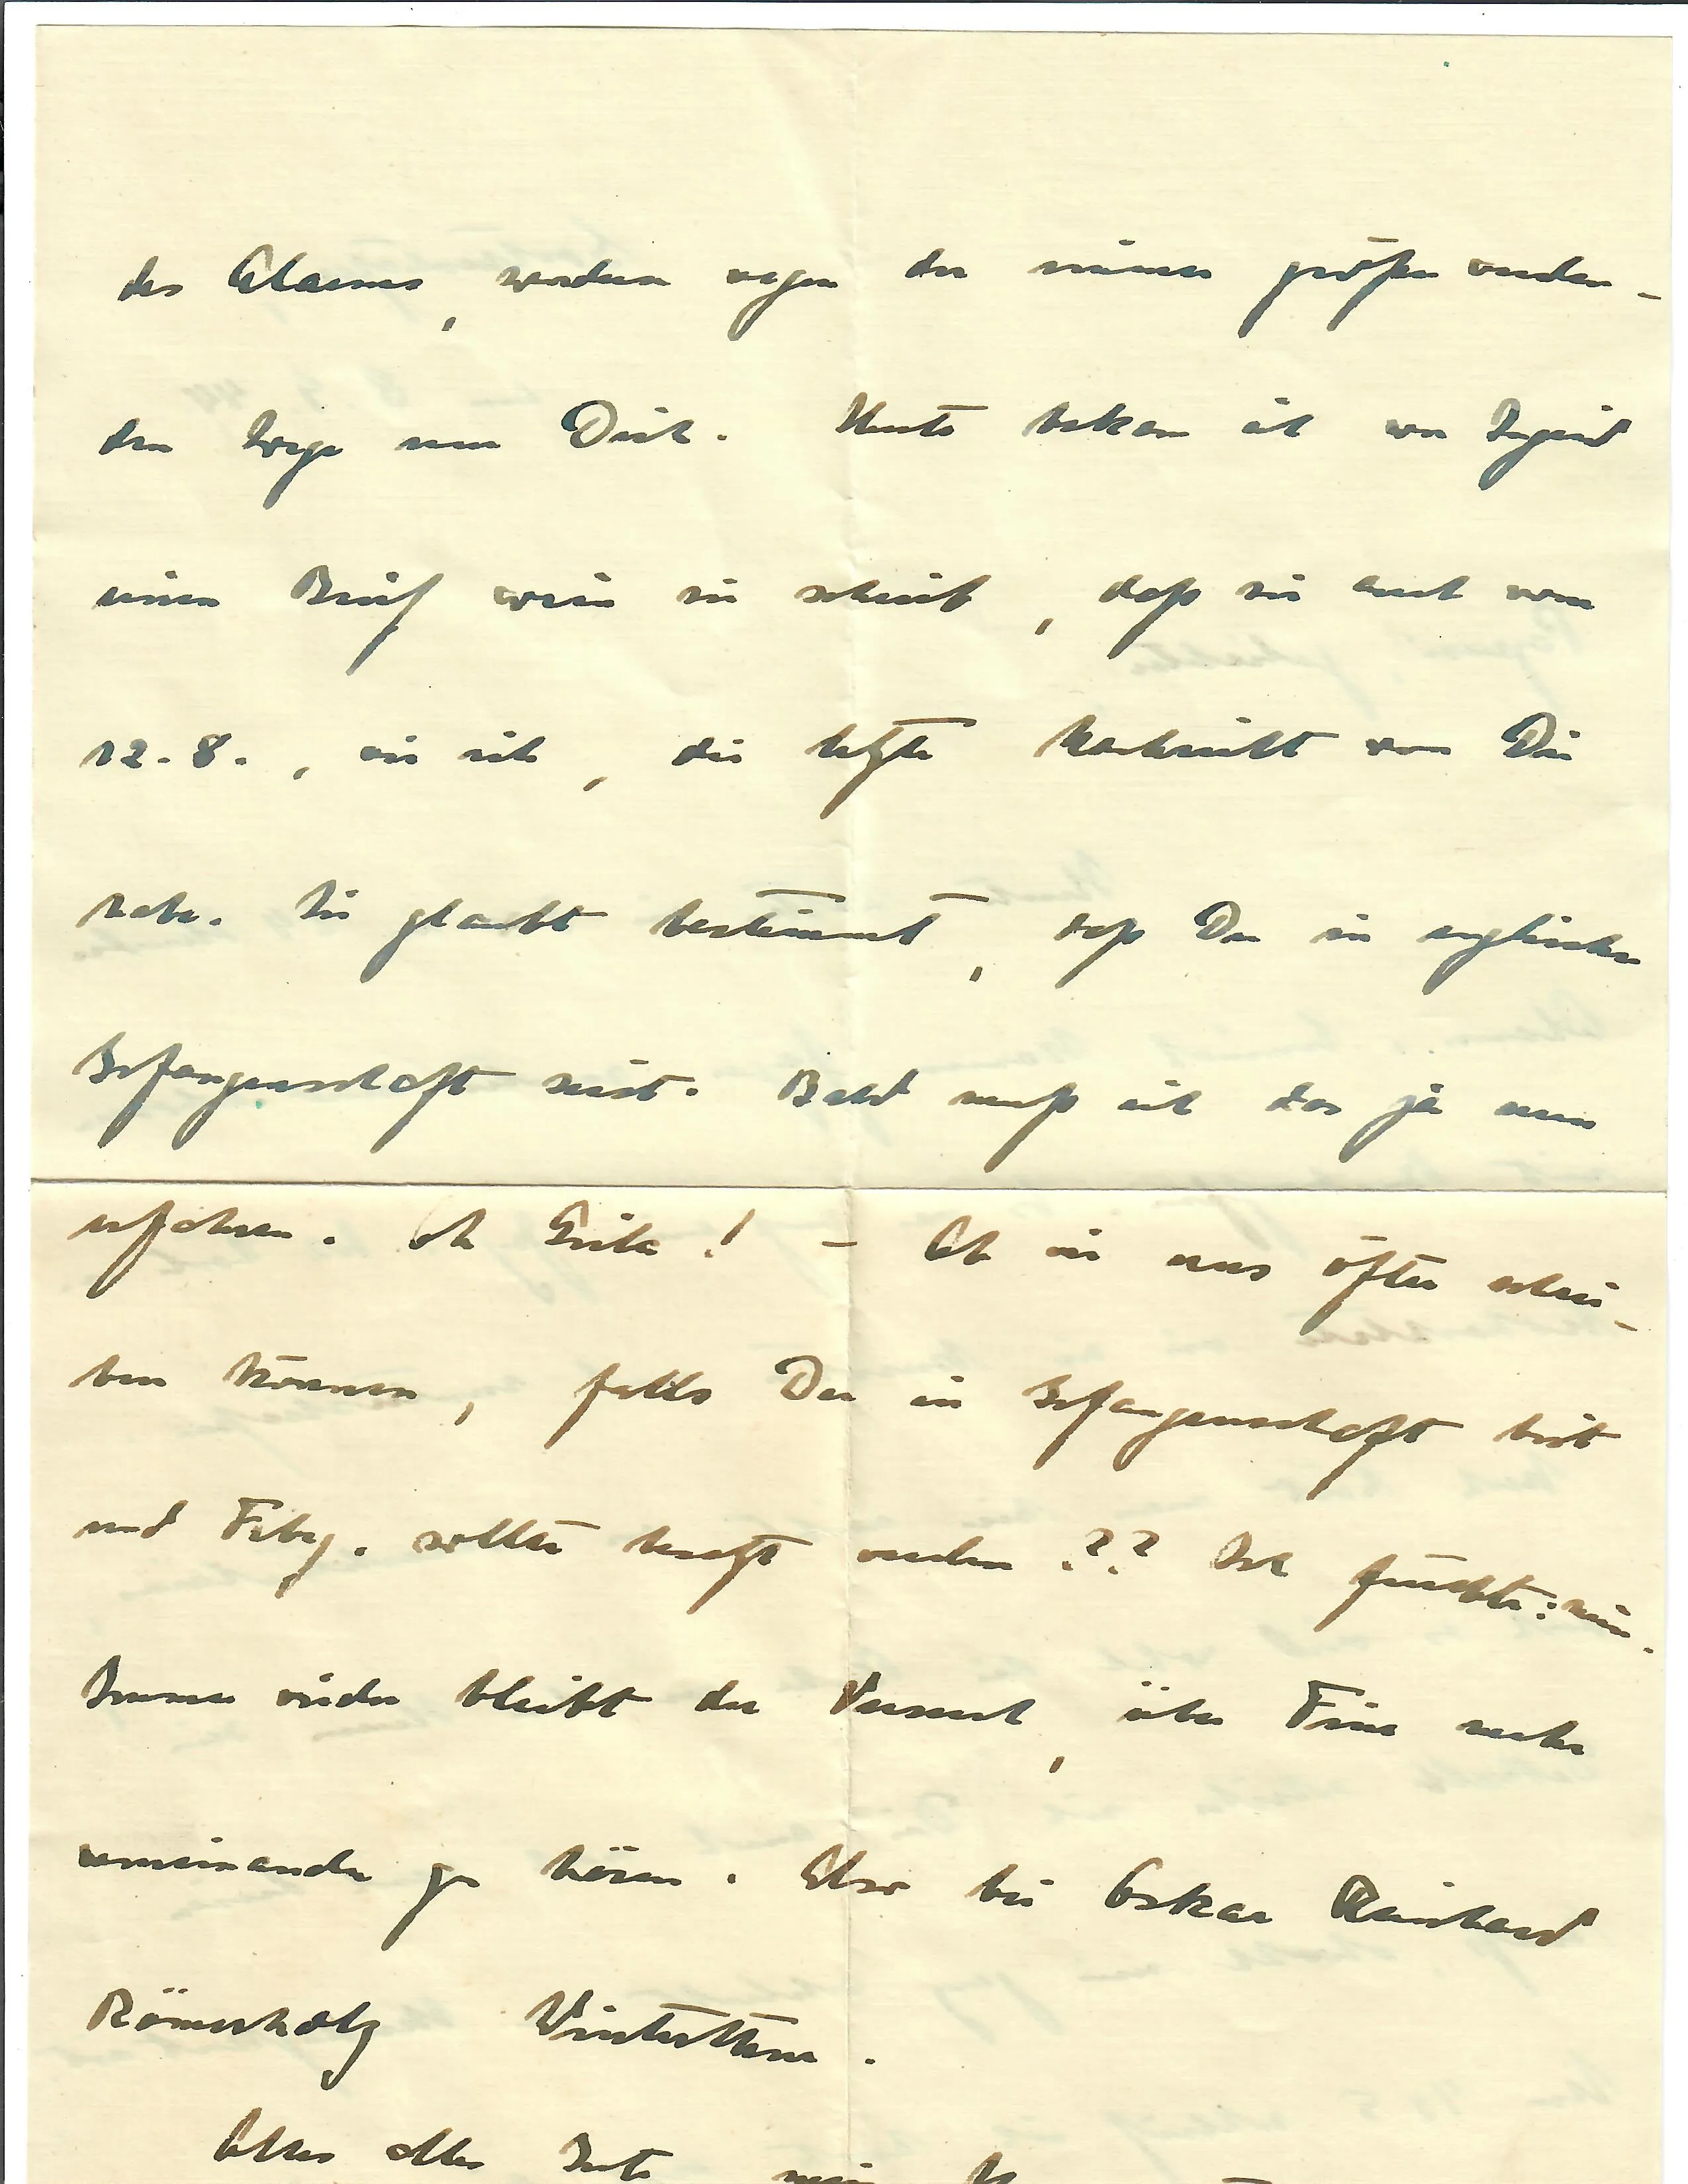 des Alarmes, sondern wegen der immer größer werden-
den Sorge um Dich. Heute bekam ich von Ingrid
einen Brief worin sie schreibt, daß sie auch vom
12.8., wie ich, die letzte Nachricht von Dir
habe. Sie glaubt bestimmt, daß Du in englischer
Gefangenschaft seist. Bald muß ich das ja nun
erfahren. Oh Gritz! – Ob wir uns öfter schrei-
ben können, falls Du in Gefangenschaft bist
und Fibg. sollte besetzt werden?? Ich fürchte: nein.
Immer wieder bleibt der Versuch, über Fine mehr
voneinander zu hören. Also bei Oskar Reinhard
Römerholz Winterthur.
Alles alles Gute mein